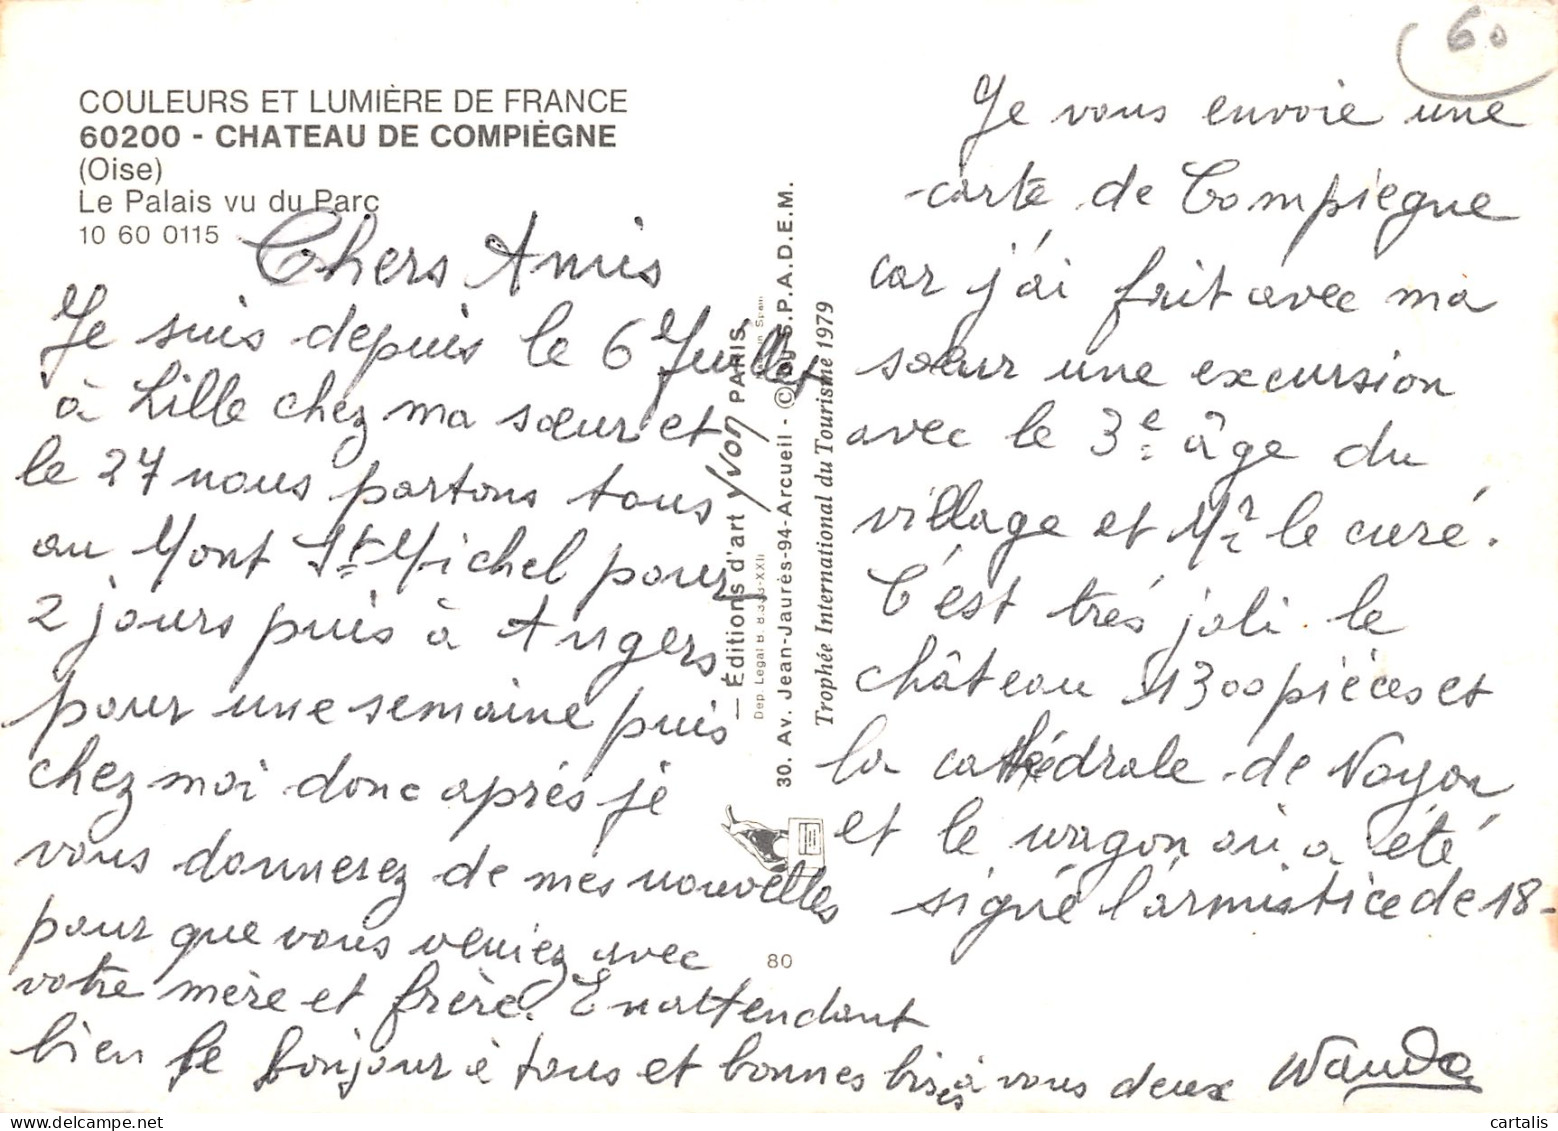 COULEURS ET LUMIÈRE DE FRANCE
60200 - CHATEAU DE COMPIÈGNE
(Oise)
Le Palais vu du Parc
10 60 0115
Chers Amis
Je suis depuis le 6 Juillet
à Lille chez ma sœur et
le 27 nous partons tous
au Mont St Michel pour
2 jours puis à Angers
pour une semaine puis
chez moi donc après je
vous donnerez de mes nouvelles
pour que vous veniez avec
votre mère et frère. En attendant
bien le bonjour à tous et bonnes bises à vous deux Wanda
— Éditions d'art yvon PARIS.
Dep. Legal B. 8.333-XXII
in Spain
30. Av. Jean-Jaurès-94-Arcueil - © by S.P.A.D.E.M.
Trophée International du Tourisme 1979
80
60
Je vous envoie une
carte de Compiegne
car j'ai fait avec ma
sœur une excursion
avec le 3e âge du
village et Mr le curé.
C'est trés joli le
château 1300 pièces et
la cathédrale de Noyon
et le wagon où a été
signé l'armistice de 18-
cartalis